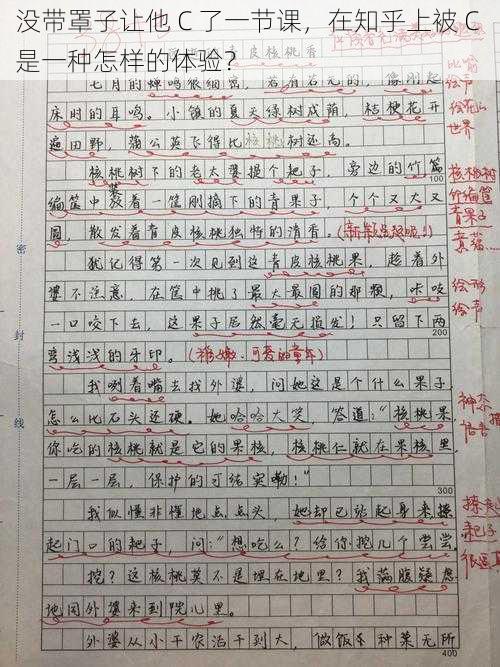 没带罩子让他 C 了一节课，在知乎上被 C
是一种怎样的体验？
皮核桃
七月的蝉鸣很细密，若有若无的，像刚起
床时的耳鸣。小镇的夏天绿树成荫，桔梗花开
遍田野，蒲公英飞得比核桃树还高。
核桃树下的老太婆摸个耙子，旁边的竹篇
100
编筐中装着一筐刚摘下的青果子，个个又大又
圆，散发着青皮核桃独特的清香。
犹记得第一次见到这青皮核桃果，趁着外
婆不注意，在筐中挑了最大最圆的那颗，咔咬
一口咬下去，这果子居然毫无损发！只留下两
200
弯浅浅的牙印。
我咧着嘴去找外婆，问她这是个什么果子，
怎么比石头还硬。她哈哈大笑，答道：“核桃果，
你吃的核桃就是它的果核，核桃仁就在果核里，
一层一层，保护的可结实嘞！”
300
我似懂非懂地点点头，她却已站起身来操
起门口的耙子，问：“想吃么？给你挖几个尝尝。
挖？这核桃莫不是埋在地里？我满腹疑虑
地同外婆来到院儿里。
外婆从小干农活干到大，做饭、种菜无所
400
比喻
绘声
绘花山
世界
核桃树
竹编筐
青果子
绘形
绘声
神态
密
封
线